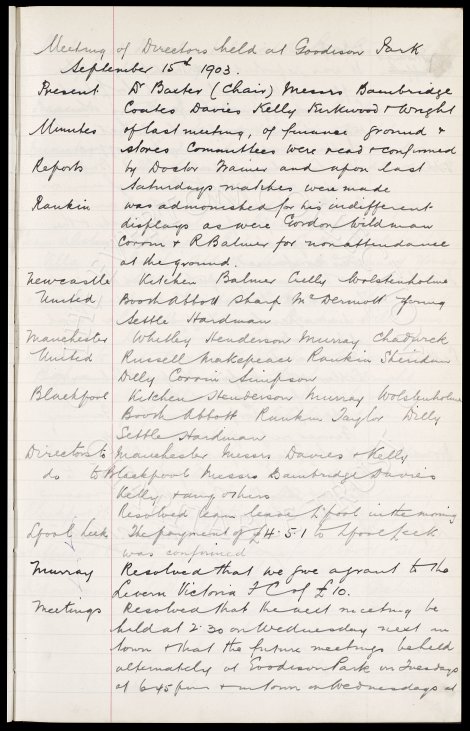 Meeting of Directors held at Goodison Park
September 15th 1903.
Present Dr Baxter (Chair) Messrs Bainbridge
Coates Davies Kelly Kirkwood & Wright
Minutes of last meeting, of finance ground &
stores Committees were read & confirmed
Reports by Doctor Trainer and upon last
Saturdays matches were made
Rankin was admonished for his indifferent
displays as were Gordon Wildman
Corrin & R Balmer for non attendance
at the ground.
Newcastle Kitchen Balmer Crelly Wolstenholme
United Booth Abbott Sharp McDermott Young
Settle Hardman
Manchester Whitley Henderson Murray Chadwick
United Russell Makepeace Rankin Sheridan
Dilly Corrin Simpson
Blackpool Kitchen Henderson Murray Wolstenholme
Booth Abbott Rankin Taylor Dilly
Settle Hardman
Directors to Manchester Messrs Davies & Kelly
do to Blackpool Messrs Bainbridge Davies
Kelly & any others
Resolved team leave L'pool in the morning
L'pool Leek The payment of £4.5.1 to L'pool Leek
was confirmed
Murray Resolved that we give a grant to the
Levern Victoria F C of £10.
Meetings Resolved that the next meeting be
held at 2.30 on Wednesday next in
town & that the future meetings be held
alternately at Goodison Park on Tuesdays
at 6.45 p.m & in town on Wednesdays at